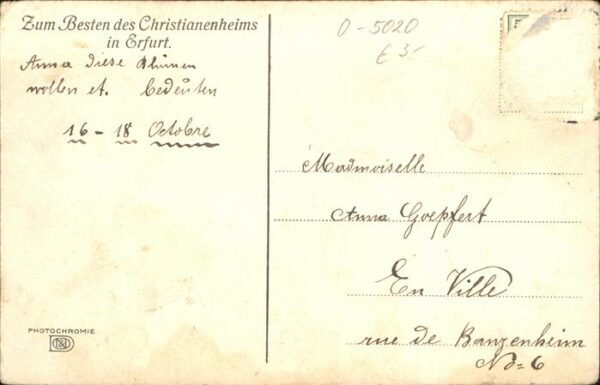 Zum Besten des Christianenheims
in Erfurt.
Anna diese Blumen
wollen et. bedeuten
16 - 18 Octobre
PHOTOCHROMIE
0-5020
£ 3.-
Madmoiselle
Anna Goepfert
En Ville
rue de Banzenheim
No= 6